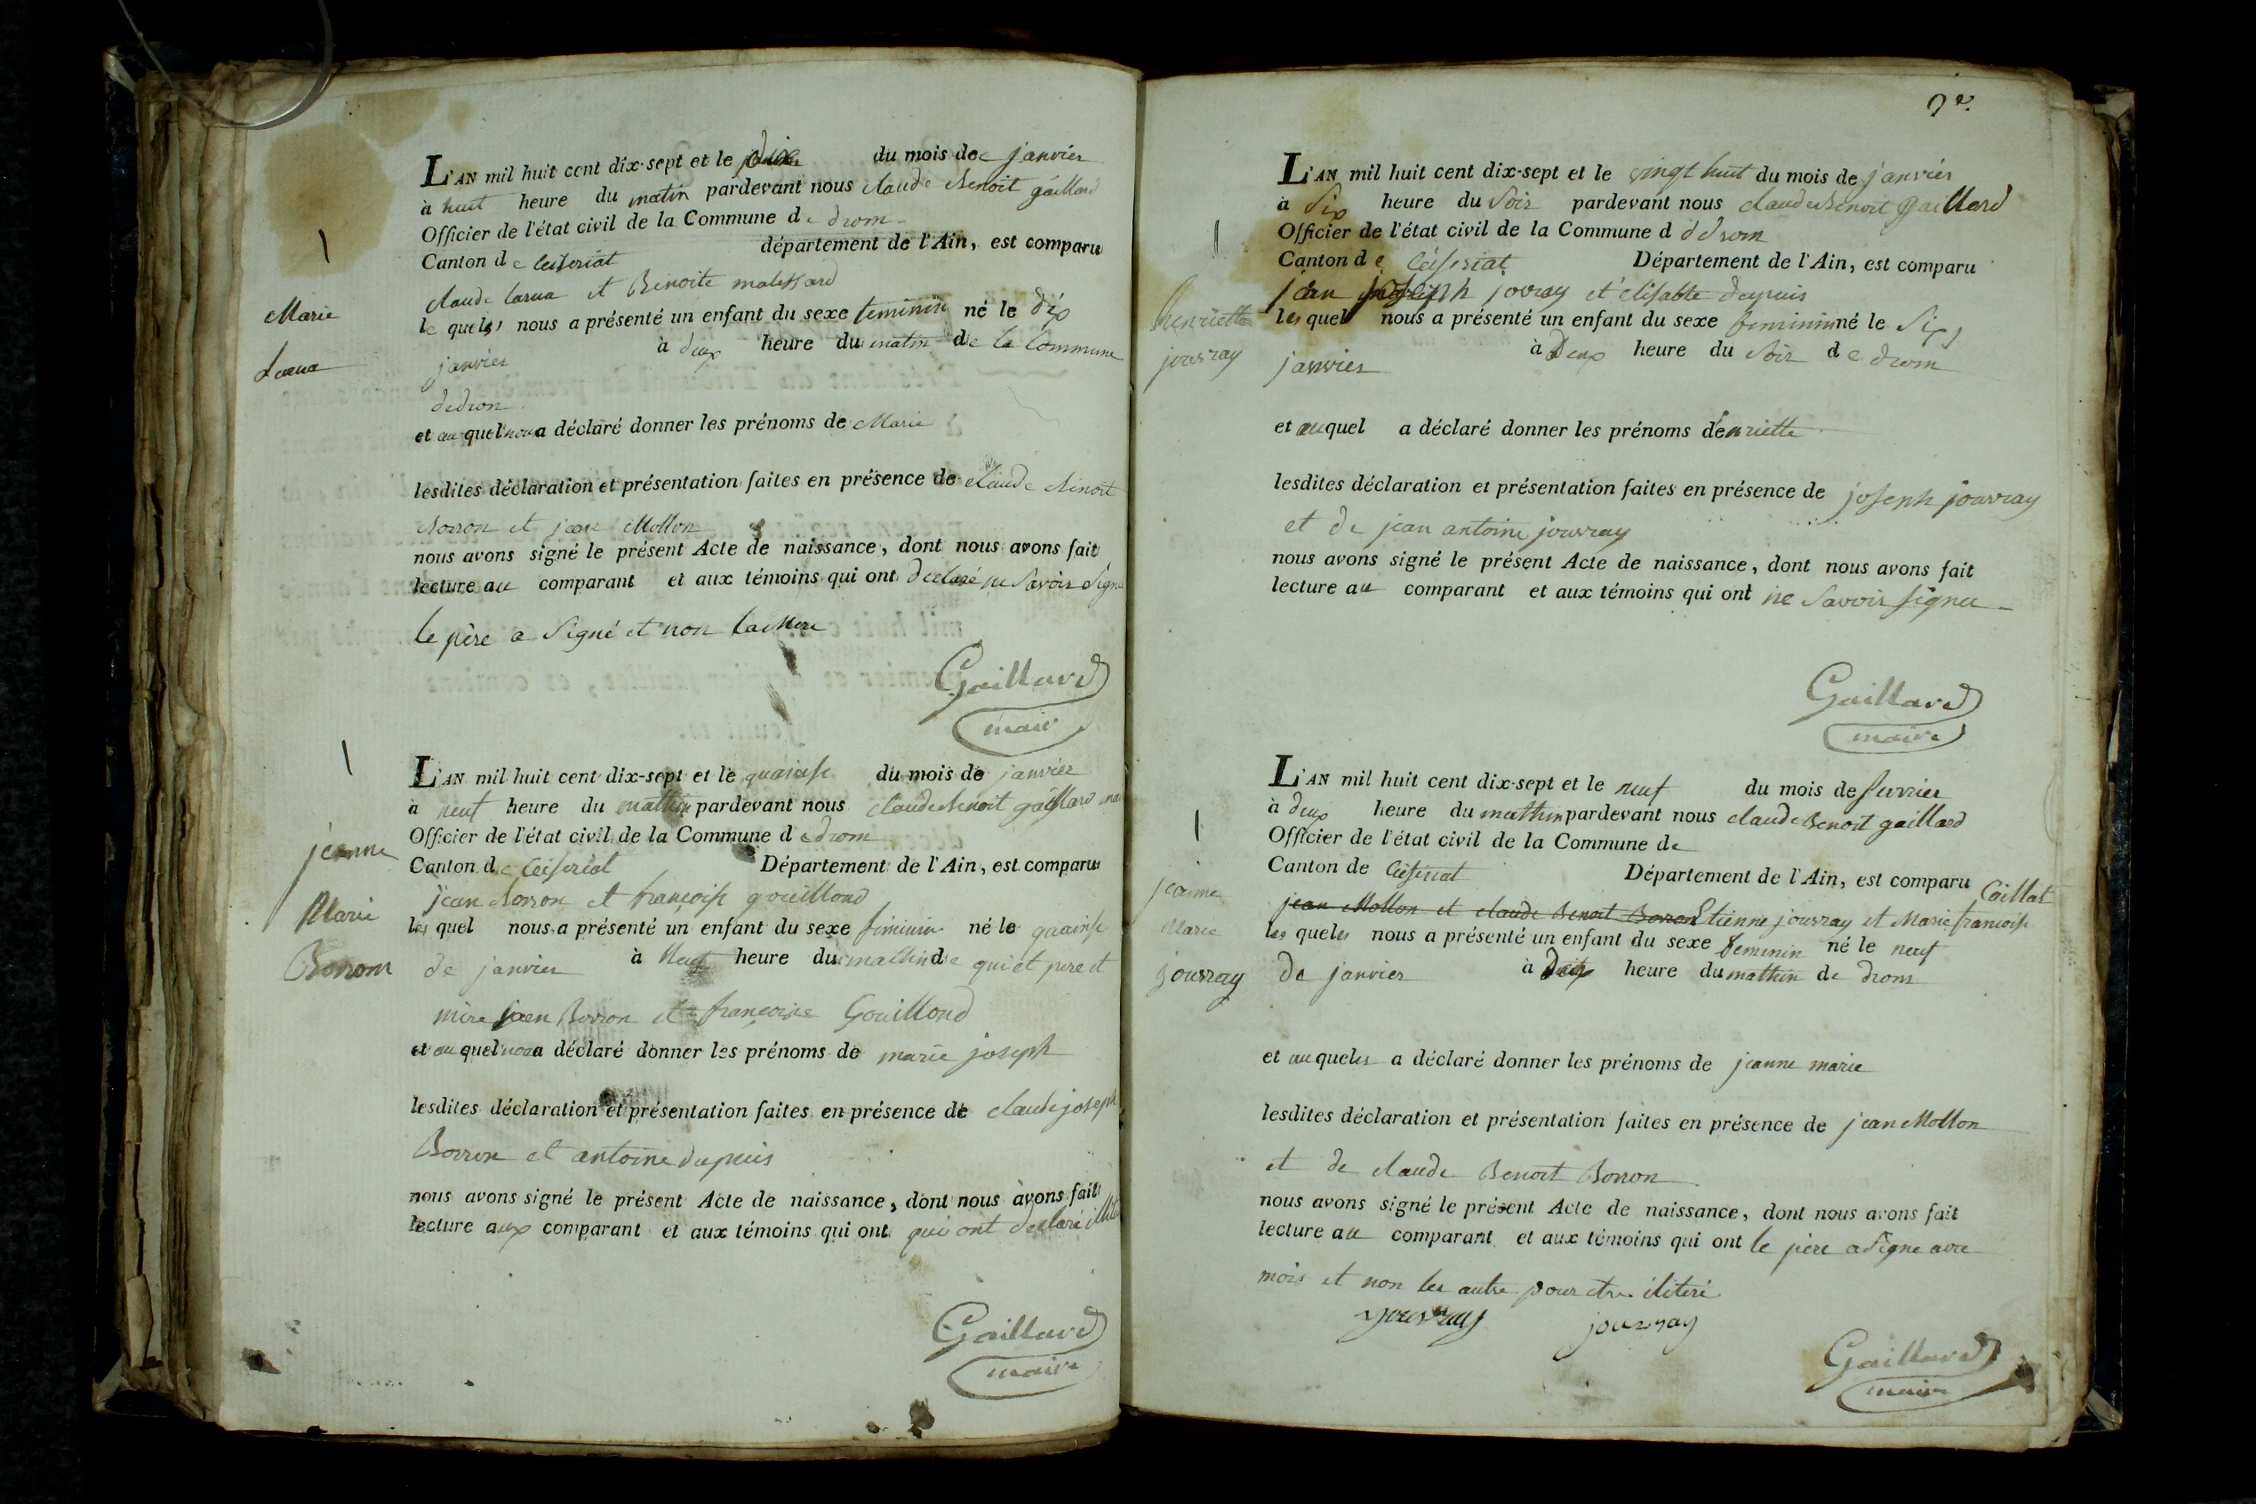 L'AN mil huit cent dix-sept et le dix du mois de janvier
à huit heure du matin pardevant nous claude Benoit gaillard
Officier de l'état civil de la Commune de drom
Canton de Ceiseriat département de l'Ain, est comparu
claude Carua et Benoite
lequels nous a présenté un enfant du sexe feminin né le dix
janvier à deux heure du matin de la Commune
dedrom
et au quel nous a déclaré donner les prénoms de Marie
lesdites déclaration et présentation faites en présence de claude Benoit
Borron et jean Mollon
nous avons signé le présent Acte de naissance, dont nous avons fait
lecture au comparant et aux témoins qui ont declaré ne Savoir Signe
le père a Signé et non la Mere
Gaillard
maire
Marie
Carua
L'AN mil huit cent dix-sept et le quainse du mois de janvier
à neuf heure du mathin pardevant nous claude Benoit gaillard
Officier de l'état civil de la Commune de drom
Canton de Ceiseriat Département de l'Ain, est comparu
jean Borron et françoise gouillond
les quel nous a présenté un enfant du sexe feminin né le quainse
de janvier à Neuf heure du mathin de qui et pere et
mere jaen Borron et françoise Gouillond
et au quel nous a déclaré donner les prénoms de marie joseph
lesdites déclaration et présentation faites en présence de claude joseph
Borron et antoine dupuis
nous avons signé le présent Acte de naissance, dont nous avons fait
lecture aux comparant et aux témoins qui ont qui ont declaré
Gaillard
maire
jeanne
Marie
Borrom
2e.
L'AN mil huit cent dix-sept et le vingt huit du mois de janvier
à Six heure du Soir pardevant nous claude Benoit Gaillard
Officier de l'état civil de la Commune d ddrom
Canton de Ceiseriat Département de l'Ain, est comparu
jean joseph jovray et élisabte dupuis
les quel nous a présenté un enfant du sexe feminin né le Six
janvier à Deux heure du Soir de drom
et auquel a déclaré donner les prénoms d'enriette
lesdites déclaration et présentation faites en présence de joseph jouvray
et de jean antoine jouvray
nous avons signé le présent Acte de naissance, dont nous avons fait
lecture au comparant et aux témoins qui ont ne Savoir signer
Gaillard
maire
henriette
jouvray
L'AN mil huit cent dix-sept et le neuf du mois de fevrier
à deux heure du mathin pardevant nous claude Benoit gaillard
Officier de l'état civil de la Commune de
Canton de Ceiseriat Département de l'Ain, est comparu
Coillat
jean Mollon et claude Benoit Borron Etienne jouvray et Marie françoise
les queles nous a présenté un enfant du sexe feminin né le neuf
de janvier à heure du mathin de drom
et au queles a déclaré donner les prénoms de jeanne marie
lesdites déclaration et présentation faites en présence de jean Mollon
et de claude Benoit Borron
nous avons signé le présent Acte de naissance, dont nous avons fait
lecture au comparant et aux témoins qui ont le père a Signe avec
mois et non les autre pour etre iliteré
jouvray jouvray
Gaillard
maire
jeanne
Marie
jouvray